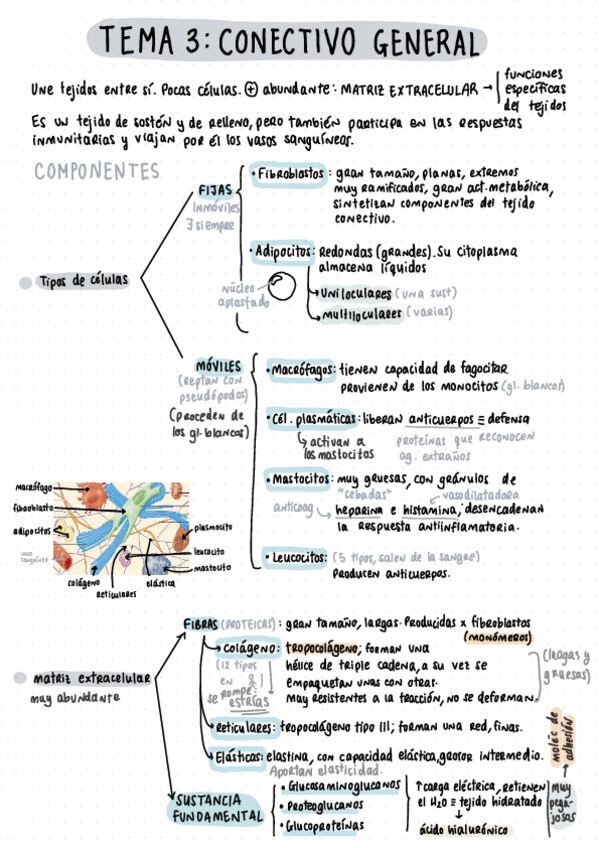 TEMA 3: CONECTIVO GENERAL
Une tejidos entre sí. Pocas células. ⊕ abundante: MATRIZ EXTRACELULAR →
funciones
específicas
del tejidos
Es un tejido de sostén y de relleno, pero también participa en las respuestas
inmunitarias y viajan por él los vasos sanguíneos.
COMPONENTES
Tipos de células
FIJAS
Inmóviles
∃ siempre
• Fibroblastos: gran tamaño, planas, extremos
muy ramificados, gran act. metabólica,
sintetizan componentes del tejido
conectivo.
• Adipocitos: Redondas (grandes). Su citoplasma
almacena líquidos
Núcleo
aplastado
→ Uniloculares (una sust)
→ Multiloculares (varias)
MÓVILES
(Reptan con
pseudópodos)
(proceden de
los gl. blancos)
• Macrófagos: tienen capacidad de fagocitar
provienen de los monocitos (gl. blancos)
• Cél. plasmáticas: liberan anticuerpos ≡ defensa
↳ activan a
los mastocitos
proteínas que reconocen
ag. extraños
• Mastocitos: muy gruesas, con gránulos de
"cebadas"
vasodilatadora
anticoag
heparina e histamina, desencadenan
la respuesta antiinflamatoria.
• Leucocitos: (5 tipos, salen de la sangre)
Producen anticuerpos.
macrófago
fibroblasto
adipocitos
vaso
sanguíneo
colágeno
reticulares
elástica
plasmocito
leucocito
mastocito
matriz extracelular
muy abundante
FIBRAS (PROTEICAS): gran tamaño, largas. Producidas x fibroblastos
(monómeros)
Colágeno: tropocolágeno; forman una
hélice de triple cadena, a su vez se
empaquetan unas con otras.
Muy resistentes a la tracción, no se deforman.
(12 tipos
en
)
se rompe:
estrías
(largas y
gruesas)
Reticulares: tropocolágeno tipo III; forman una red, finas.
Elásticas: elastina, con capacidad elástica, grosor intermedio.
Aportan elasticidad.
SUSTANCIA
FUNDAMENTAL
• Glucosaminoglucanos
• Proteoglucanos
• Glucoproteínas
↑ carga eléctrica, retienen
el H2O ≡ tejido hidratado
ácido hialurónico
muy
pega-
josas
moléc de
adhesión